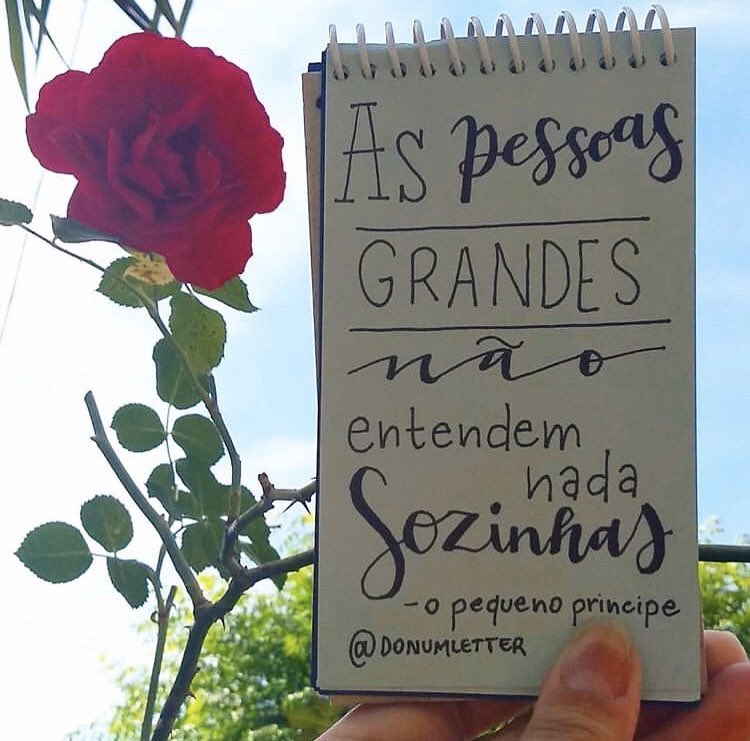 As pessoas
GRANDES
não
entendem
nada
Sozinhas
- o pequeno principe
@DONUMLETTER